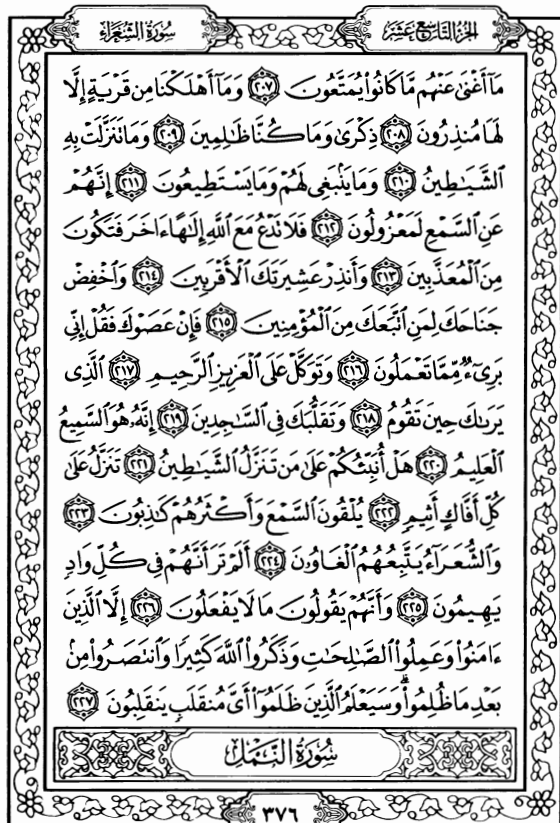 سُورَةُ الشُّعَرَاءِ
الجُزْءُ التَّاسِعَ عَشَرَ
مَآ أَغْنَىٰ عَنْهُم مَّا كَانُوا۟ يُمَتَّعُونَ ٢٠٧ وَمَآ أَهْلَكْنَا مِن قَرْيَةٍ إِلَّا
لَهَا مُنذِرُونَ ٢٠٨ ذِكْرَىٰ وَمَا كُنَّا ظَٰلِمِينَ ٢٠٩ وَمَا تَنَزَّلَتْ بِهِ
الشَّيَٰطِينُ ٢١٠ وَمَا يَنۢبَغِى لَهُمْ وَمَا يَسْتَطِيعُونَ ٢١١ إِنَّهُمْ
عَنِ السَّمْعِ لَمَعْزُولُونَ ٢١٢ فَلَا تَدْعُ مَعَ اللَّهِ إِلَٰهًا ءَاخَرَ فَتَكُونَ
مِنَ الْمُعَذَّبِينَ ٢١٣ وَأَنذِرْ عَشِيرَتَكَ الْأَقْرَبِينَ ٢١٤ وَاخْفِضْ
جَنَاحَكَ لِمَنِ اتَّبَعَكَ مِنَ الْمُؤْمِنِينَ ٢١٥ فَإِنْ عَصَوْكَ فَقُلْ إِنِّى
بَرِىٓءٌ مِّمَّا تَعْمَلُونَ ٢١٦ وَتَوَكَّلْ عَلَى الْعَزِيزِ الرَّحِيمِ ٢١٧ الَّذِى
يَرَىٰكَ حِينَ تَقُومُ ٢١٨ وَتَقَلُّبَكَ فِى السَّٰجِدِينَ ٢١٩ إِنَّهُۥ هُوَ السَّمِيعُ
الْعَلِيمُ ٢٢٠ هَلْ أُنَبِّئُكُمْ عَلَىٰ مَن تَنَزَّلُ الشَّيَٰطِينُ ٢٢١ تَنَزَّلُ عَلَىٰ
كُلِّ أَفَّاكٍ أَثِيمٍ ٢٢٢ يُلْقُونَ السَّمْعَ وَأَكْثَرُهُمْ كَٰذِبُونَ ٢٢٣
وَالشُّعَرَآءُ يَتَّبِعُهُمُ الْغَاوُۥنَ ٢٢٤ أَلَمْ تَرَ أَنَّهُمْ فِى كُلِّ وَادٍ
يَهِيمُونَ ٢٢٥ وَأَنَّهُمْ يَقُولُونَ مَا لَا يَفْعَلُونَ ٢٢٦ إِلَّا الَّذِينَ
ءَامَنُوا۟ وَعَمِلُوا۟ الصَّٰلِحَٰتِ وَذَكَرُوا۟ اللَّهَ كَثِيرًا وَانتَصَرُوا۟ مِنۢ
بَعْدِ مَا ظُلِمُوا۟ ۗ وَسَيَعْلَمُ الَّذِينَ ظَلَمُوٓا۟ أَىَّ مُنقَلَبٍ يَنقَلِبُونَ ٢٢٧
سُورَةُ النَّمْلِ
٣٧٦